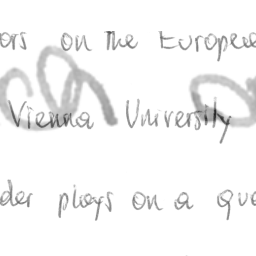 ors on the Europea
Vienna University
der plays on a qua